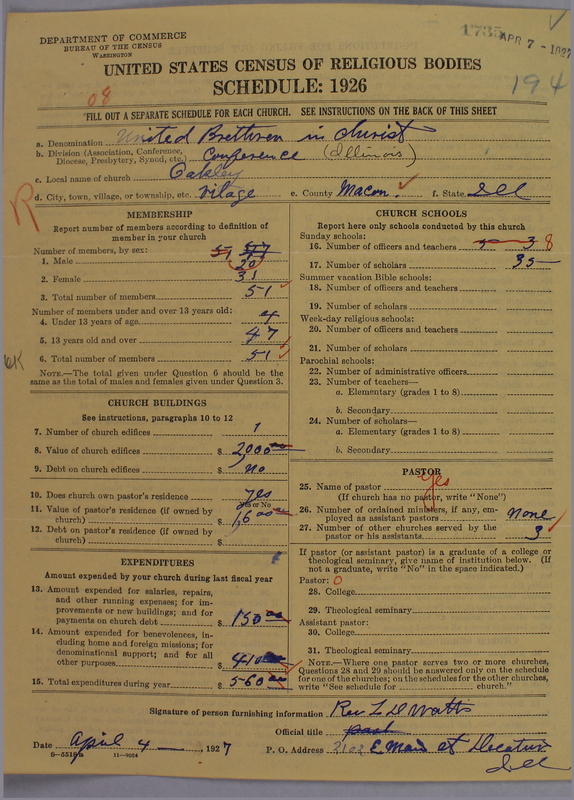 DEPARTMENT OF COMMERCE
BUREAU OF THE CENSUS
WASHINGTON
1735 APR 7 - 1927
194
UNITED STATES CENSUS OF RELIGIOUS BODIES
SCHEDULE: 1926
08
FILL OUT A SEPARATE SCHEDULE FOR EACH CHURCH. SEE INSTRUCTIONS ON THE BACK OF THIS SHEET
a. Denomination United Brethren in Christ
b. Division (Association, Conference, Diocese, Presbytery, Synod, etc.) Conference (Illinois)
c. Local name of church Oakley
d. City, town, village, or township, etc. Village e. County Macon f. State Ill
R
MEMBERSHIP
Report number of members according to definition of
member in your church
Number of members, by sex:
1. Male 20
2. Female 31
3. Total number of members 51
Number of members under and over 13 years old:
4. Under 13 years of age 4
5. 13 years old and over 47
6. Total number of members 51
NOTE.—The total given under Question 6 should be the
same as the total of males and females given under Question 3.
OK
CHURCH BUILDINGS
See instructions, paragraphs 10 to 12
7. Number of church edifices 1
8. Value of church edifices $ 2000
9. Debt on church edifices $ No
10. Does church own pastor's residence yes
Yes or No
11. Value of pastor's residence (if owned by
church) $
12. Debt on pastor's residence (if owned by
church) $
EXPENDITURES
Amount expended by your church during last fiscal year
13. Amount expended for salaries, repairs,
and other running expenses; for im-
provements or new buildings; and for
payments on church debt $ 150
14. Amount expended for benevolences, in-
cluding home and foreign missions; for
denominational support; and for all
other purposes $ 410
15. Total expenditures during year $ 560
CHURCH SCHOOLS
Report here only schools conducted by this church
Sunday schools:
16. Number of officers and teachers 8
17. Number of scholars 35
Summer vacation Bible schools:
18. Number of officers and teachers
19. Number of scholars
Week-day religious schools:
20. Number of officers and teachers
21. Number of scholars
Parochial schools:
22. Number of administrative officers
23. Number of teachers—
a. Elementary (grades 1 to 8)
b. Secondary
24. Number of scholars—
a. Elementary (grades 1 to 8)
b. Secondary
PASTOR
25. Name of pastor yes
(If church has no pastor, write "None")
26. Number of ordained ministers, if any, em-
ployed as assistant pastors none
27. Number of other churches served by the
pastor or his assistants 3
If pastor (or assistant pastor) is a graduate of a college or
theological seminary, give name of institution below. (If
not a graduate, write "No" in the space indicated.)
Pastor: 0
28. College
29. Theological seminary
Assistant pastor:
30. College
31. Theological seminary
NOTE.—Where one pastor serves two or more churches,
Questions 28 and 29 should be answered only on the schedule
for one of the churches; on the schedules for the other churches,
write "See schedule for church."
Signature of person furnishing information Rev L D Watts
Official title
Date April 4, 1927 P. O. Address E Main st Decatur
Ill
11—9054